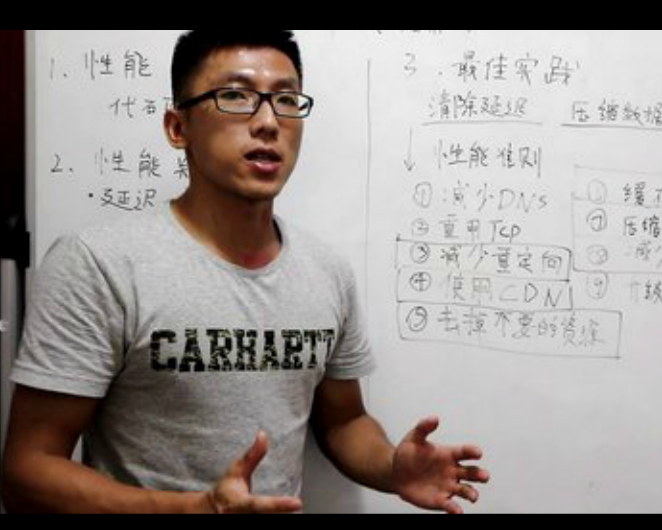 1. 性能
代码
2. 性能
·延迟
3. 最佳实践
清除延迟
压缩数据
↓ 性能准则
① 减少DNS
② 重用TCP
③ 减少重定向
④ 使用CDN
⑤ 去掉不要的资源
⑦ 压缩
CARHARTT